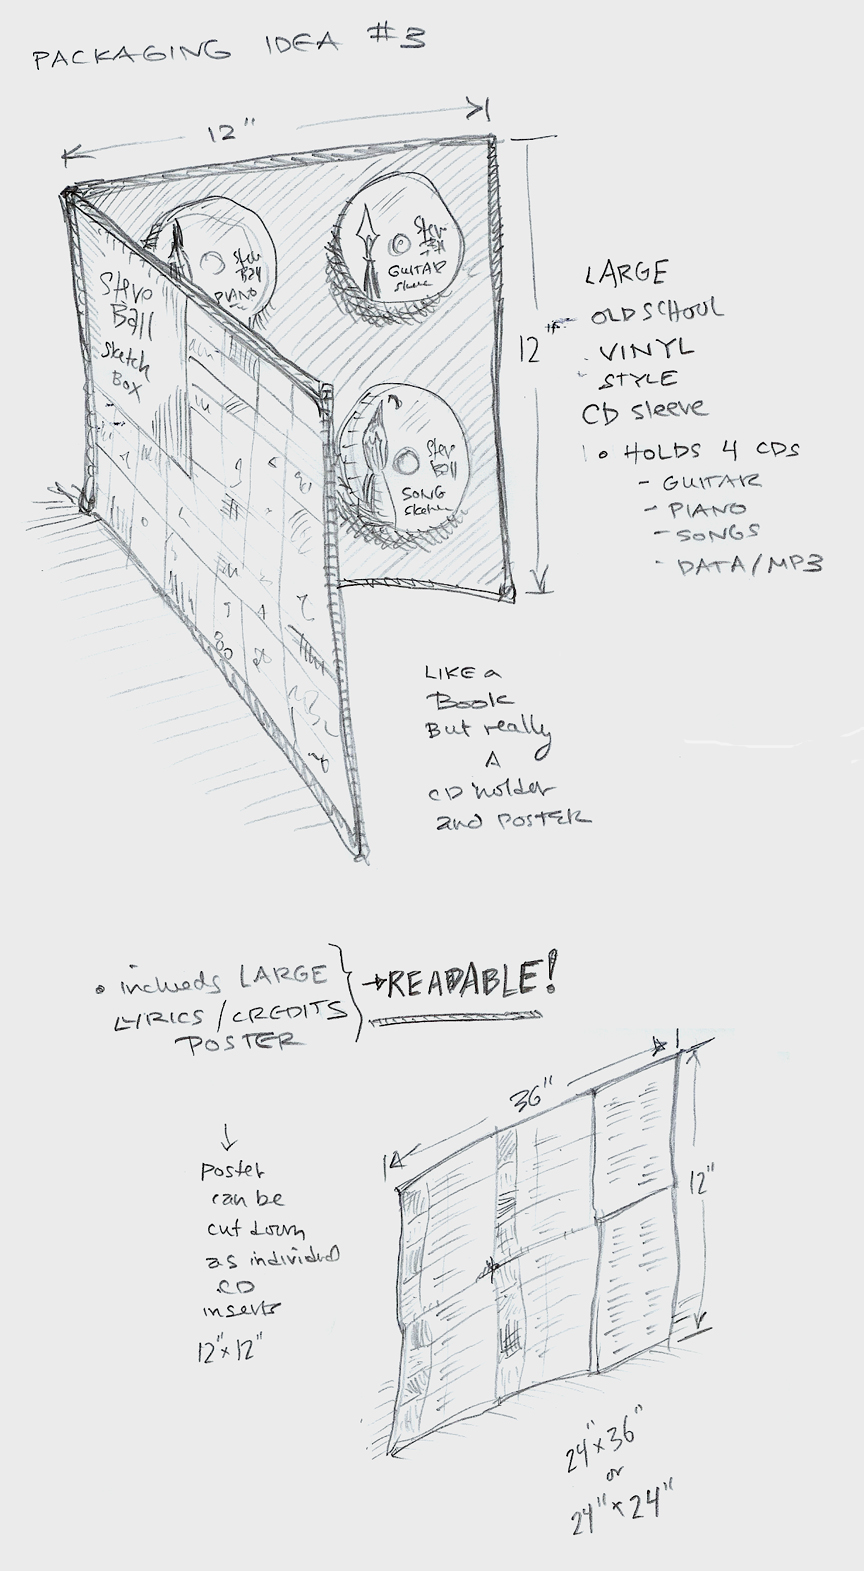 PACKAGING IDEA #3
12"
12"
Steve
Ball
PIANO
Steve
GUITAR
Steve
Ball
sketch
BOX
Steve
Ball
SONG
sketch
LARGE
OLD SCHOOL
VINYL
STYLE
CD sleeve
• HOLDS 4 CDS
- GUITAR
- PIANO
- SONGS
- DATA/MP3
LIKE a
Book
But really
A
CD holder
and POSTER
• includes LARGE
LYRICS/CREDITS
POSTER
→READABLE!
36"
12"
poster
can be
cut down
as individual
CD
inserts
12"x12"
24"x36"
or
24"x24"